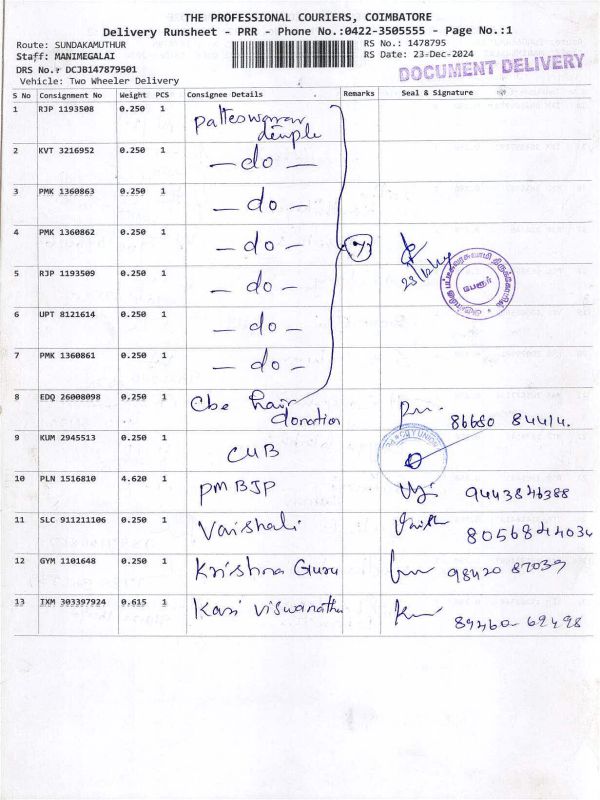 THE PROFESSIONAL COURIERS, COIMBATORE
Delivery Runsheet - PRR - Phone No.:0422-3505555 - Page No.:1
Route: SUNDAKAMUTHUR
RS No.: 1478795
Staff: MANIMEGALAI
RS Date: 23-Dec-2024
DRS No.: DCJB147879501
DOCUMENT DELIVERY
Vehicle: Two Wheeler Delivery
S No Consignment No Weight PCS Consignee Details Remarks Seal & Signature
1 RJP 1193508 0.250 1 Patteswarar temple
2 KVT 3216952 0.250 1 - do -
3 PMK 1360863 0.250 1 - do -
4 PMK 1360862 0.250 1 - do - 7
23/12/24
5 RJP 1193509 0.250 1 - do -
பேரூர்
6 UPT 8121614 0.250 1 - do -
7 PMK 1360861 0.250 1 - do -
8 EDQ 26008098 0.250 1 Cbe hair donation 86680 84414.
9 KUM 2945513 0.250 1 CUB
10 PLN 1516810 4.620 1 PM BJP 9443846388
11 SLC 911211106 0.250 1 Vaishali 8056844034
12 GYM 1101648 0.250 1 Krishna Guru 98420 87039
13 IXM 303397924 0.615 1 Kasi Viswanathan 89460-69498